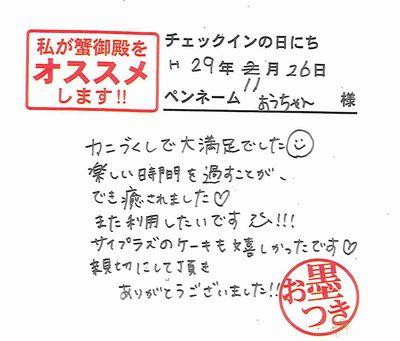 私が蟹御殿を
オススメ
します!!
チェックインの日にち
H 29年 11月 26日
ペンネーム おうちゃん 様
カニづくしで大満足でした
楽しい時間を過すことが、
でき癒されました♡
また利用したいです!!!
サイプラズのケーキも嬉しかったです♡
親切にして頂き
ありがとうございました!!
お墨つき